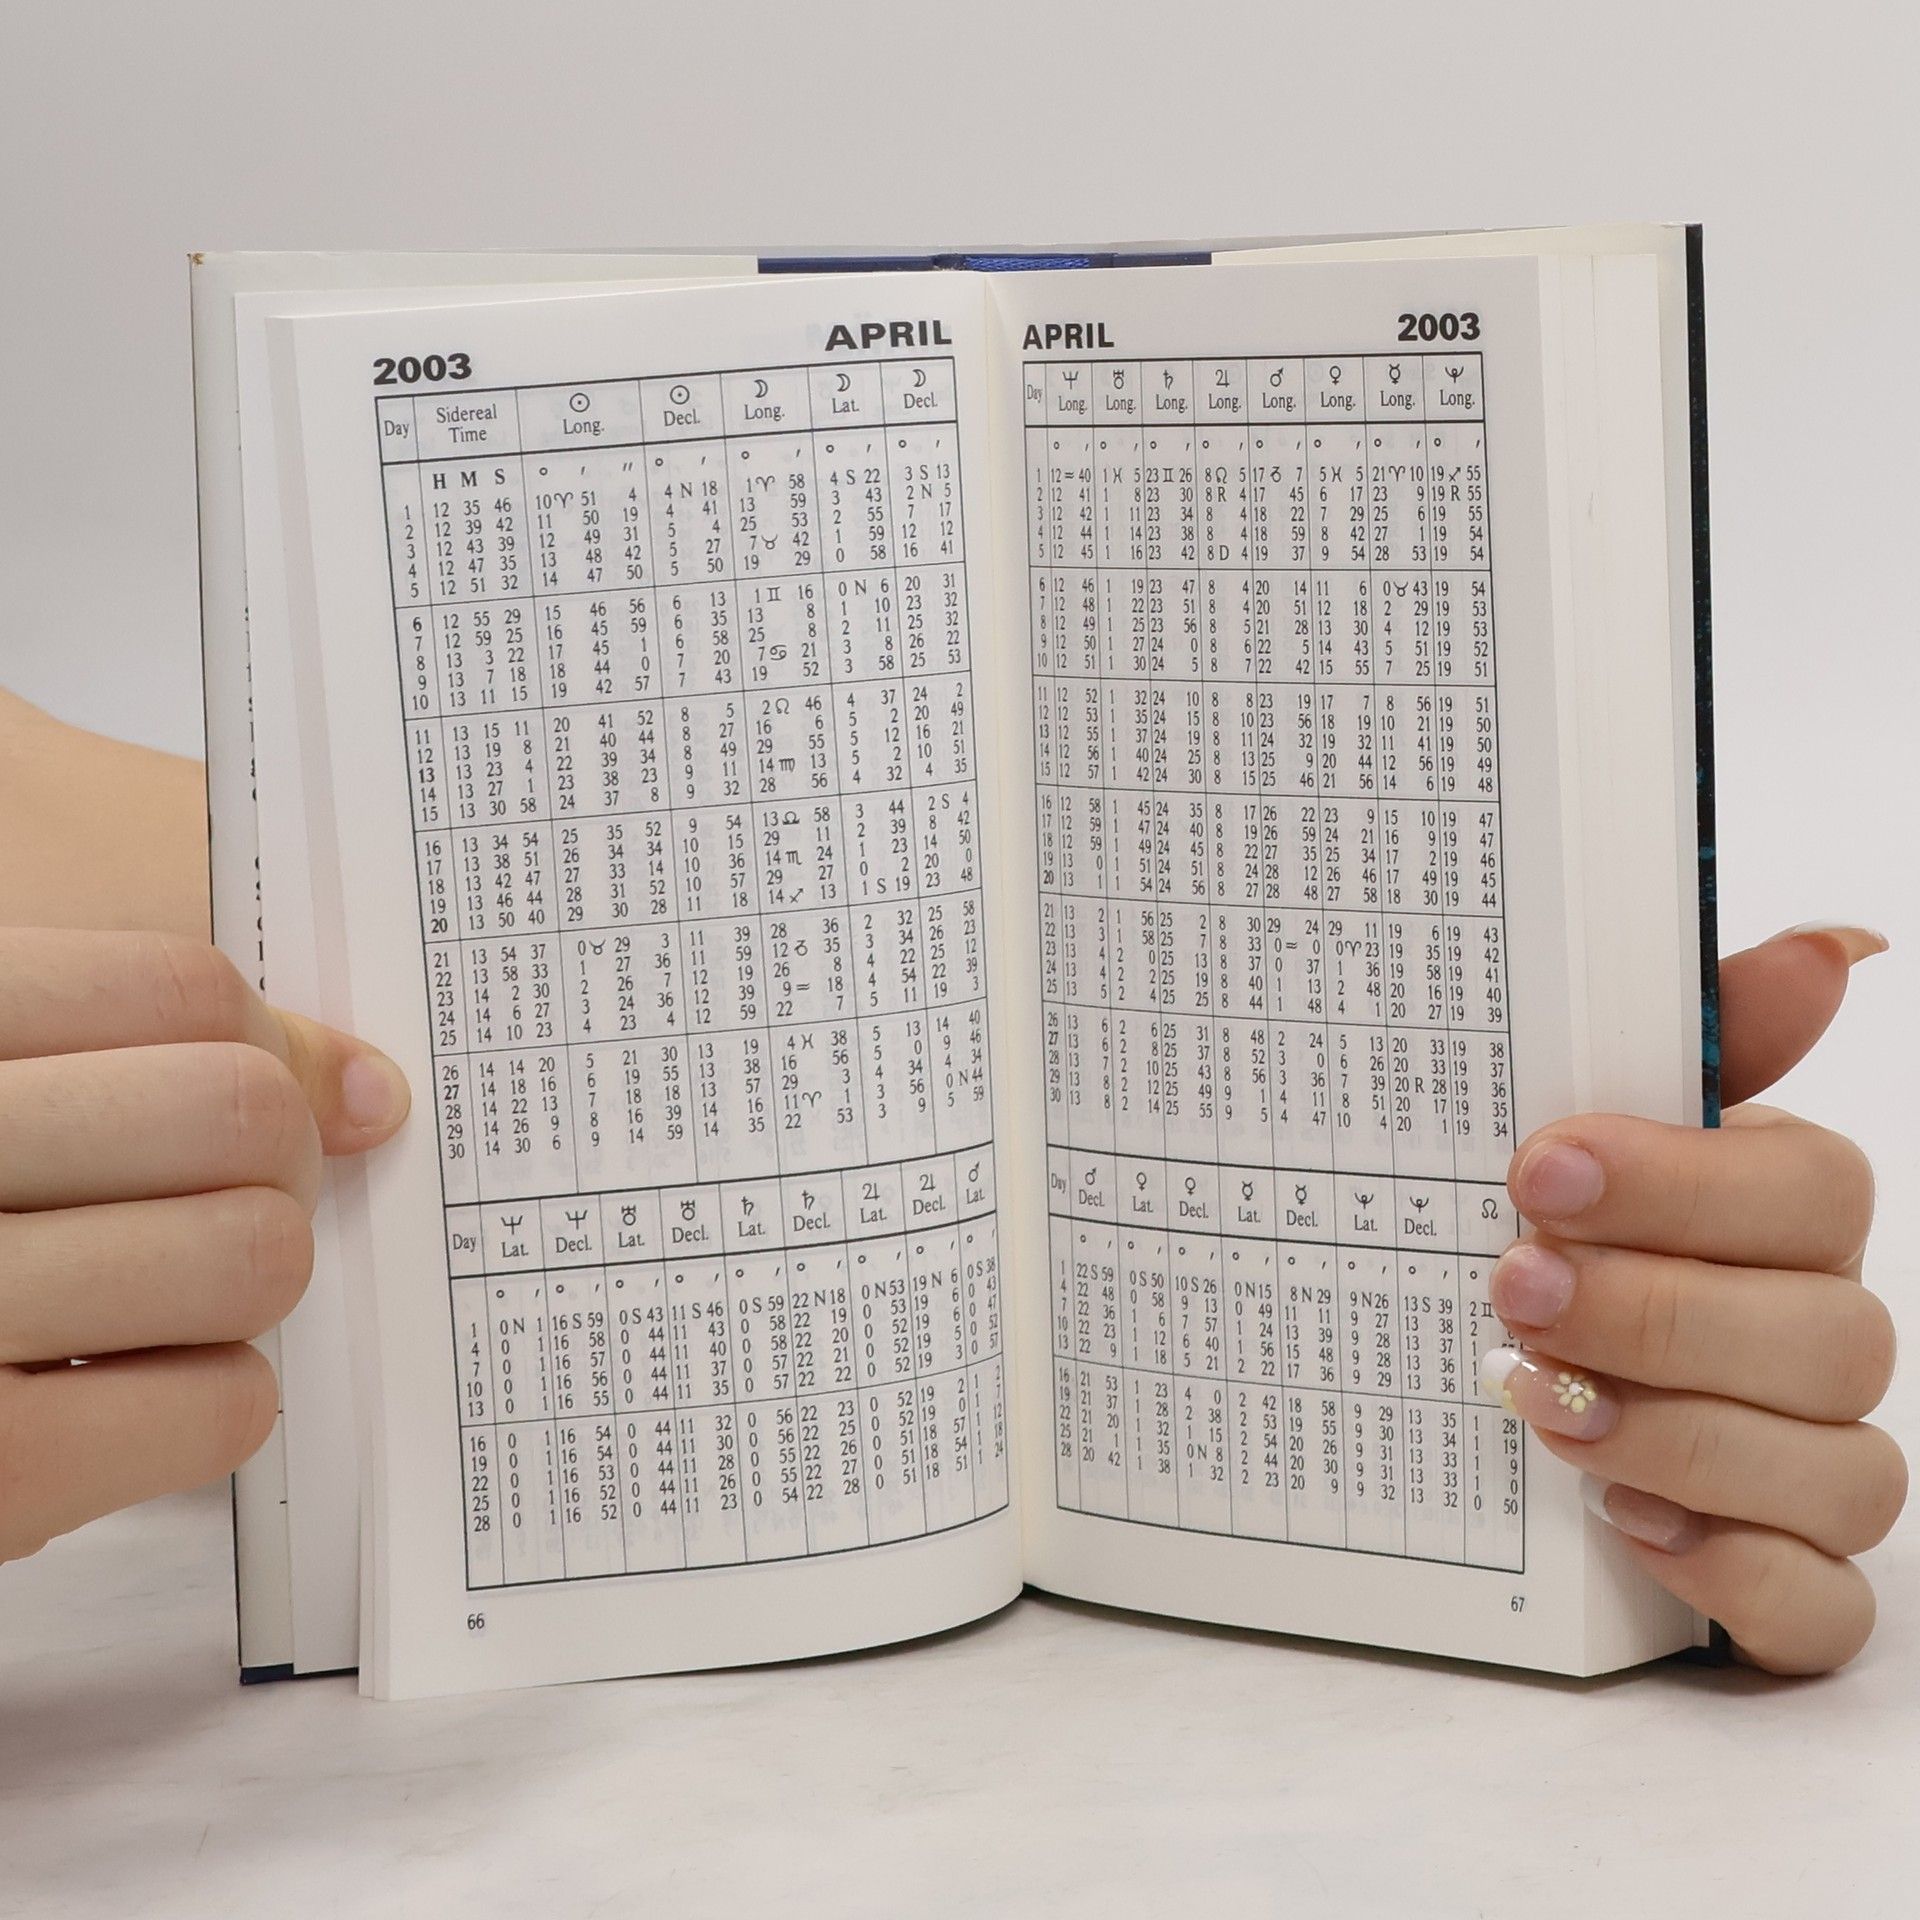 2003 APRIL
Day Sidereal Time ☉ Long. ☉ Decl. ☽ Long. ☽ Lat. ☽ Decl.
H M S ° ′ ″ ° ′ ° ′ ° ′ ° ′
1 12 35 46 10♈51 4 4 N 18 1♈58 4 S 22 3 S 13
2 12 39 42 11 50 19 4 41 13 59 3 43 2 N 5
3 12 43 39 12 49 31 5 4 25 53 2 55 7 17
4 12 47 35 13 48 42 5 27 7♉42 1 59 12 12
5 12 51 32 14 47 50 5 50 19 29 0 58 16 41
6 12 55 29 15 46 56 6 13 1♊16 0 N 6 20 31
7 12 59 25 16 45 59 6 35 13 8 1 10 23 32
8 13 3 22 17 45 1 6 58 25 8 2 11 25 32
9 13 7 18 18 44 0 7 20 7♋21 3 8 26 22
10 13 11 15 19 42 57 7 43 19 52 3 58 25 53
11 13 15 11 20 41 52 8 5 2♌46 4 37 24 2
12 13 19 8 21 40 44 8 27 16 6 5 2 20 49
13 13 23 4 22 39 34 8 49 29 55 5 12 16 21
14 13 27 1 23 38 23 9 11 14♍13 5 2 10 51
15 13 30 58 24 37 8 9 32 28 56 4 32 4 35
16 13 34 54 25 35 52 9 54 13♎58 3 44 2 S 4
17 13 38 51 26 34 34 10 15 29 11 2 39 8 42
18 13 42 47 27 33 14 10 36 14♏24 1 23 14 50
19 13 46 44 28 31 52 10 57 29 27 0 2 20 0
20 13 50 40 29 30 28 11 18 14♐13 1 S 19 23 48
21 13 54 37 0♉29 3 11 39 28 36 2 32 25 58
22 13 58 33 1 27 36 11 59 12♑35 3 34 26 23
23 14 2 30 2 26 7 12 19 26 8 4 22 25 12
24 14 6 27 3 24 36 12 39 9♒18 4 54 22 39
25 14 10 23 4 23 4 12 59 22 7 5 11 19 3
26 14 14 20 5 21 30 13 19 4♓38 5 13 14 40
27 14 18 16 6 19 55 13 38 16 56 5 0 9 46
28 14 22 13 7 18 18 13 57 29 3 4 34 4 34
29 14 26 9 8 16 39 14 16 11♈1 3 56 0 N 44
30 14 30 6 9 14 59 14 35 22 53 3 9 5 59
Day ♆ Lat. ♆ Decl. ♅ Lat. ♅ Decl. ♄ Lat. ♄ Decl. ♃ Lat. ♃ Decl. ♂ Lat.
° ′ ° ′ ° ′ ° ′ ° ′ ° ′ ° ′ ° ′ ° ′
1 0 N 1 16 S 59 0 S 43 11 S 46 0 S 59 22 N 18 0 N 53 19 N 6 0 S 38
4 0 1 16 58 0 44 11 43 0 58 22 19 0 53 19 6 0 43
7 0 1 16 57 0 44 11 40 0 58 22 20 0 52 19 6 0 47
10 0 1 16 56 0 44 11 37 0 57 22 21 0 52 19 5 0 52
13 0 1 16 55 0 44 11 35 0 57 22 22 0 52 19 3 0 57
16 0 1 16 54 0 44 11 32 0 56 22 23 0 52 19 2 1 2
19 0 1 16 54 0 44 11 30 0 56 22 25 0 52 19 0 1 7
22 0 1 16 53 0 44 11 28 0 55 22 26 0 51 18 57 1 12
25 0 1 16 52 0 44 11 26 0 55 22 27 0 51 18 54 1 18
28 0 1 16 52 0 44 11 23 0 54 22 28 0 51 18 51 1 24
66
APRIL 2003
Day ♆ Long. ♅ Long. ♄ Long. ♃ Long. ♂ Long. ♀ Long. ☿ Long. ♇ Long.
° ′ ° ′ ° ′ ° ′ ° ′ ° ′ ° ′ ° ′
1 12♒40 1♓5 23♊26 8♌5 17♑7 5♓5 21♈10 19♐55
2 12 41 1 8 23 30 8 R 4 17 45 6 17 23 9 19 R 55
3 12 42 1 11 23 34 8 4 18 22 7 29 25 6 19 55
4 12 44 1 14 23 38 8 4 18 59 8 42 27 1 19 54
5 12 45 1 16 23 42 8 D 4 19 37 9 54 28 53 19 54
6 12 46 1 19 23 47 8 4 20 14 11 6 0♉43 19 54
7 12 48 1 22 23 51 8 4 20 51 12 18 2 29 19 53
8 12 49 1 25 23 56 8 5 21 28 13 30 4 12 19 53
9 12 50 1 27 24 0 8 6 22 5 14 43 5 51 19 52
10 12 51 1 30 24 5 8 7 22 42 15 55 7 25 19 51
11 12 52 1 32 24 10 8 8 23 19 17 7 8 56 19 51
12 12 53 1 35 24 15 8 10 23 56 18 19 10 21 19 50
13 12 55 1 37 24 19 8 11 24 32 19 32 11 41 19 50
14 12 56 1 40 24 25 8 13 25 9 20 44 12 56 19 49
15 12 57 1 42 24 30 8 15 25 46 21 56 14 6 19 48
16 12 58 1 45 24 35 8 17 26 22 23 9 15 10 19 47
17 12 59 1 47 24 40 8 19 26 59 24 21 16 9 19 47
18 12 59 1 49 24 45 8 22 27 35 25 34 17 2 19 46
19 13 0 1 51 24 51 8 24 28 12 26 46 17 49 19 45
20 13 1 1 54 24 56 8 27 28 48 27 58 18 30 19 44
21 13 2 1 56 25 2 8 30 29 24 29 11 19 6 19 43
22 13 3 1 58 25 7 8 33 0♒0 0♈23 19 35 19 42
23 13 4 2 0 25 13 8 37 0 37 1 36 19 58 19 41
24 13 4 2 2 25 19 8 40 1 13 2 48 20 16 19 40
25 13 5 2 4 25 25 8 44 1 48 4 1 20 27 19 39
26 13 6 2 6 25 31 8 48 2 24 5 13 20 33 19 38
27 13 6 2 8 25 37 8 52 3 0 6 26 20 33 19 37
28 13 7 2 10 25 43 8 56 3 36 7 39 20 R 28 19 36
29 13 8 2 12 25 49 9 1 4 11 8 51 20 17 19 35
30 13 8 2 14 25 55 9 5 4 47 10 4 20 1 19 34
Day ♂ Decl. ♀ Lat. ♀ Decl. ☿ Lat. ☿ Decl. ♇ Lat. ♇ Decl. ☊
° ′ ° ′ ° ′ ° ′ ° ′ ° ′ ° ′ °
1 22 S 59 0 S 50 10 S 26 0 N 15 8 N 29 9 N 26 13 S 39 2♊
4 22 48 0 58 9 13 0 49 11 11 9 27 13 38 2
7 22 36 1 6 7 57 1 24 13 39 9 28 13 37 1
10 22 23 1 12 6 40 1 56 15 48 9 28 13 36 1
13 22 9 1 18 5 21 2 22 17 36 9 29 13 36 1
16 21 53 1 23 4 0 2 42 18 58 9 29 13 35 1 28
19 21 37 1 28 2 38 2 53 19 55 9 30 13 34 1 19
22 21 20 1 32 1 15 2 54 20 26 9 31 13 33 1 9
25 21 1 1 35 0 N 8 2 44 20 30 9 31 13 33 1 0
28 20 42 1 38 1 32 2 23 20 9 9 32 13 32 0 50
67